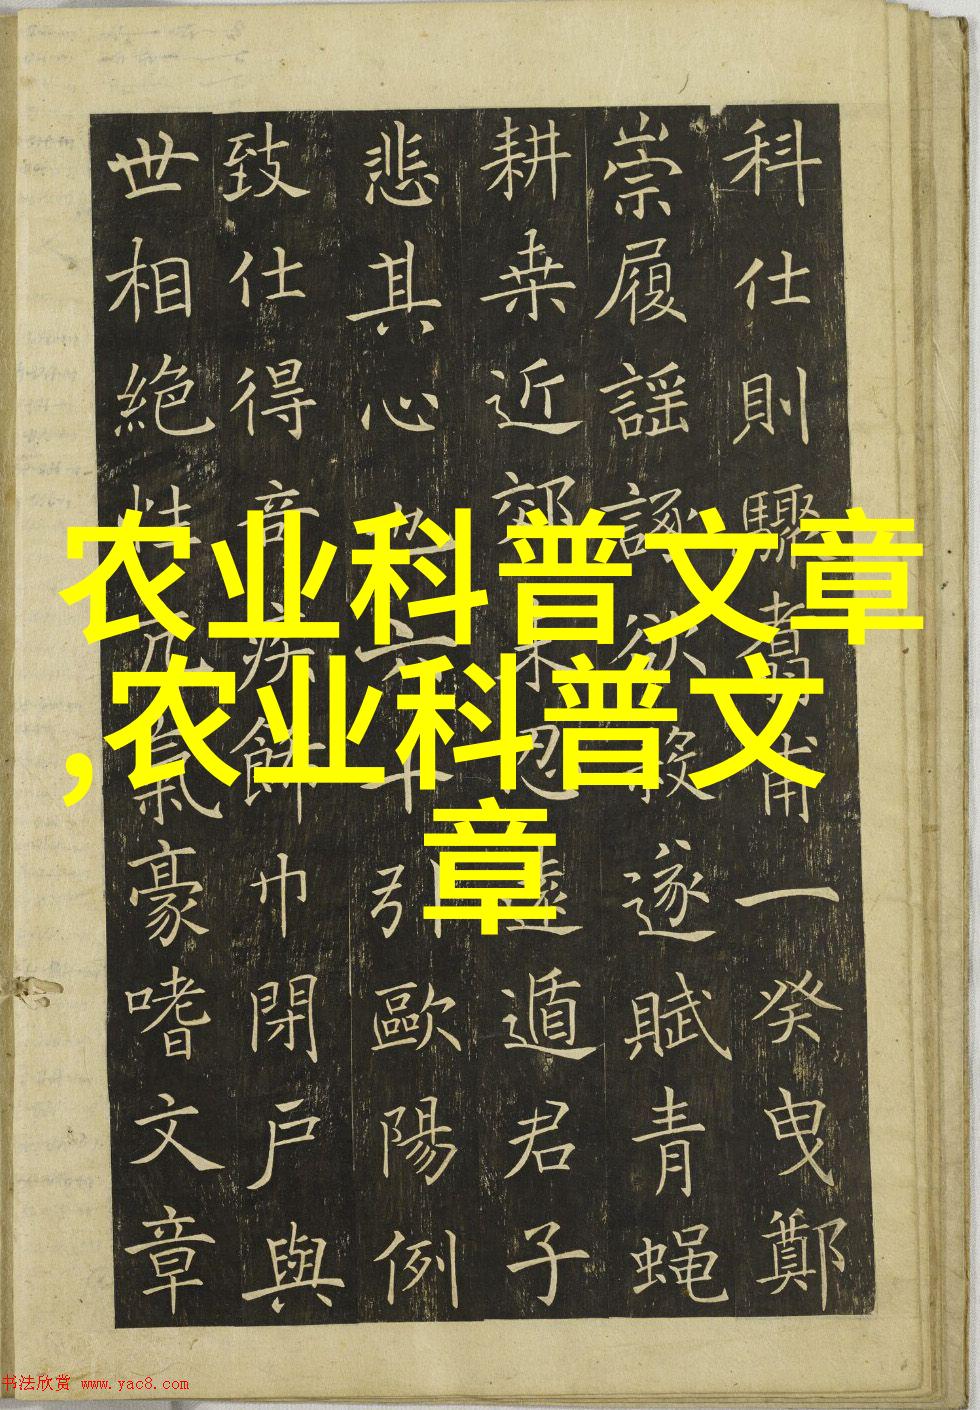 农业科普文章
,农业科普文
章
科仕則驟翥甫一癸曳鄭
崇履謡諑欲殺遂賦青蝇
耕桒近郊忍遁君子
悲其心六十引歐陽例
致仕得音疾飾巾閉戸與
世相絶性亢氣豪嗜文章
书法欣赏 www.yac8.com